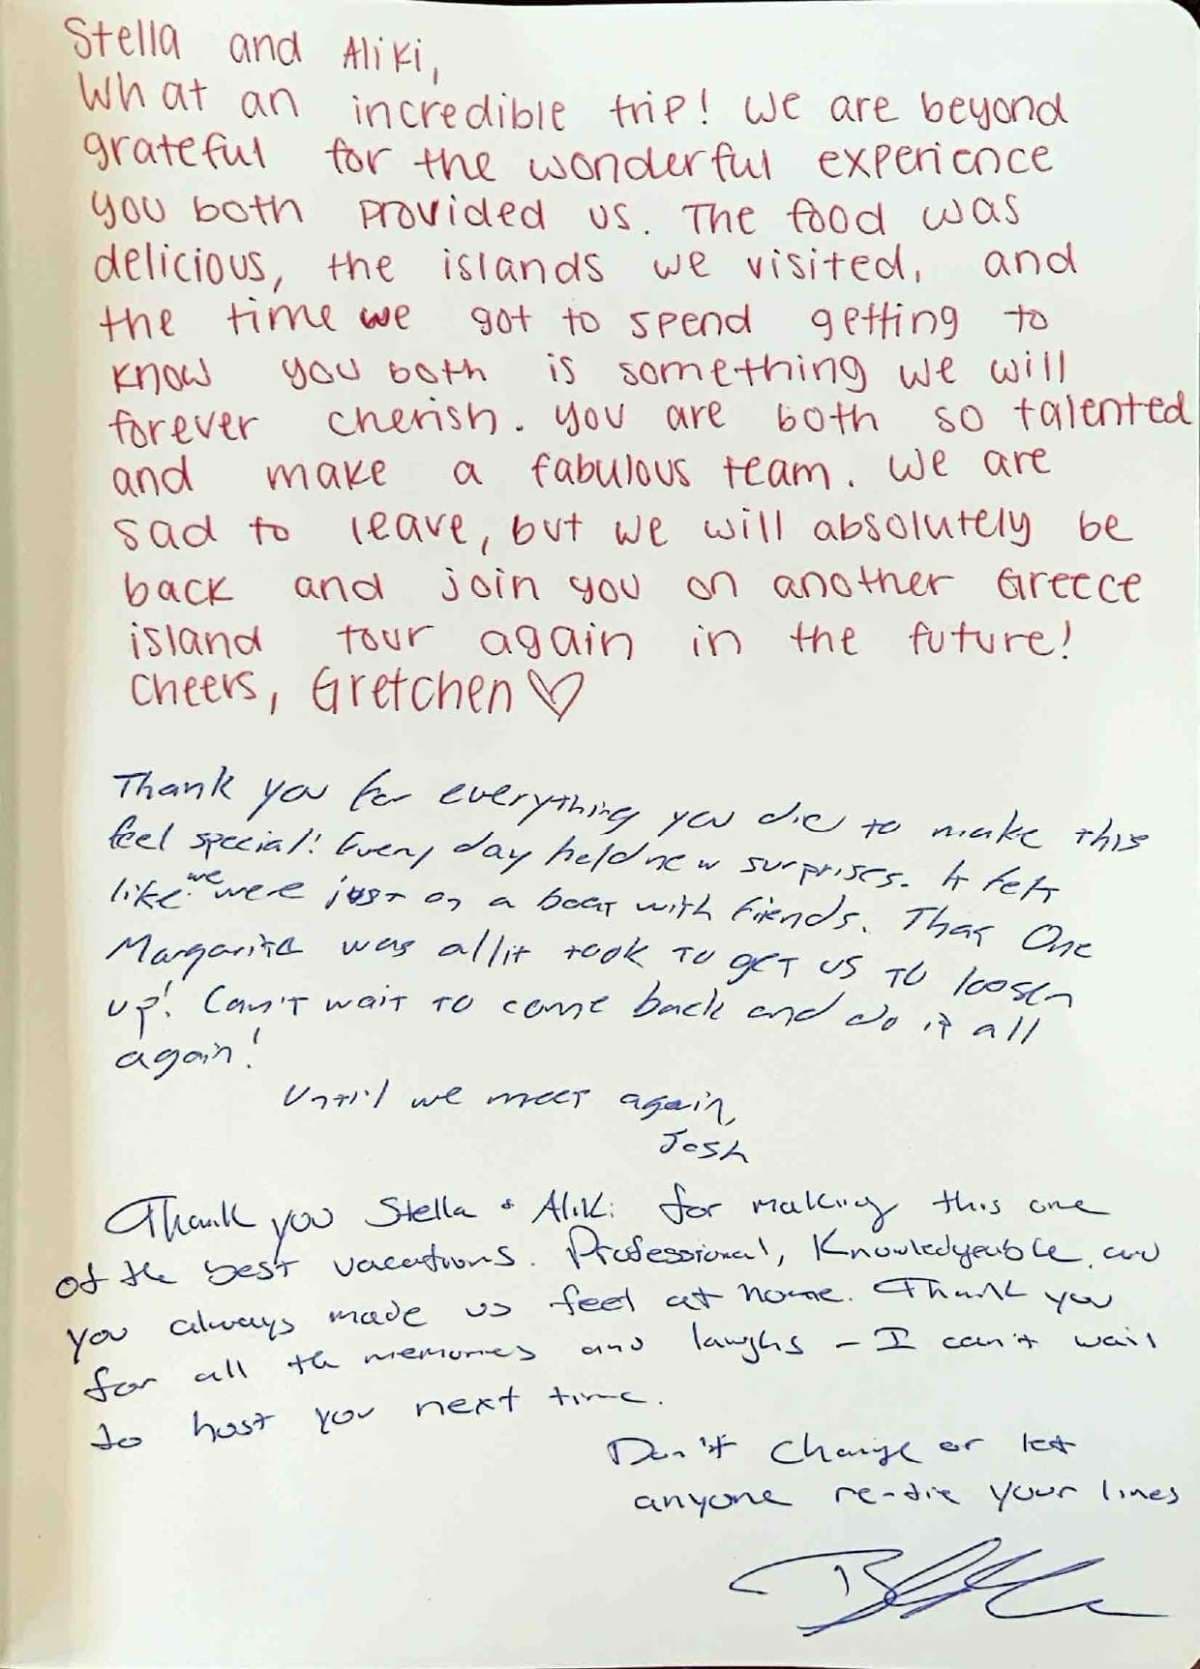 Stella and Aliki,
What an incredible trip! We are beyond
grateful for the wonderful experience
you both provided us. The food was
delicious, the islands we visited, and
the time we got to spend getting to
know you both is something we will
forever cherish. You are both so talented
and make a fabulous team. We are
sad to leave, but we will absolutely be
back and join you on another Greece
island tour again in the future!
Cheers, Gretchen ♡
Thank you for everything you did to make this
feel special! Every day held new surprises. It felt
like we were just on a boat with friends. That One
Margarita was all it took to get us to loosen
up! Can't wait to come back and do it all
again!
Until we meet again,
Josh
Thank you Stella & Aliki for making this one
of the best vacations. Professional, Knowledgeable, and
you always made us feel at home. Thank you
for all the memories and laughs - I can't wait
to host you next time.
Don't change or let
anyone re-tie your lines